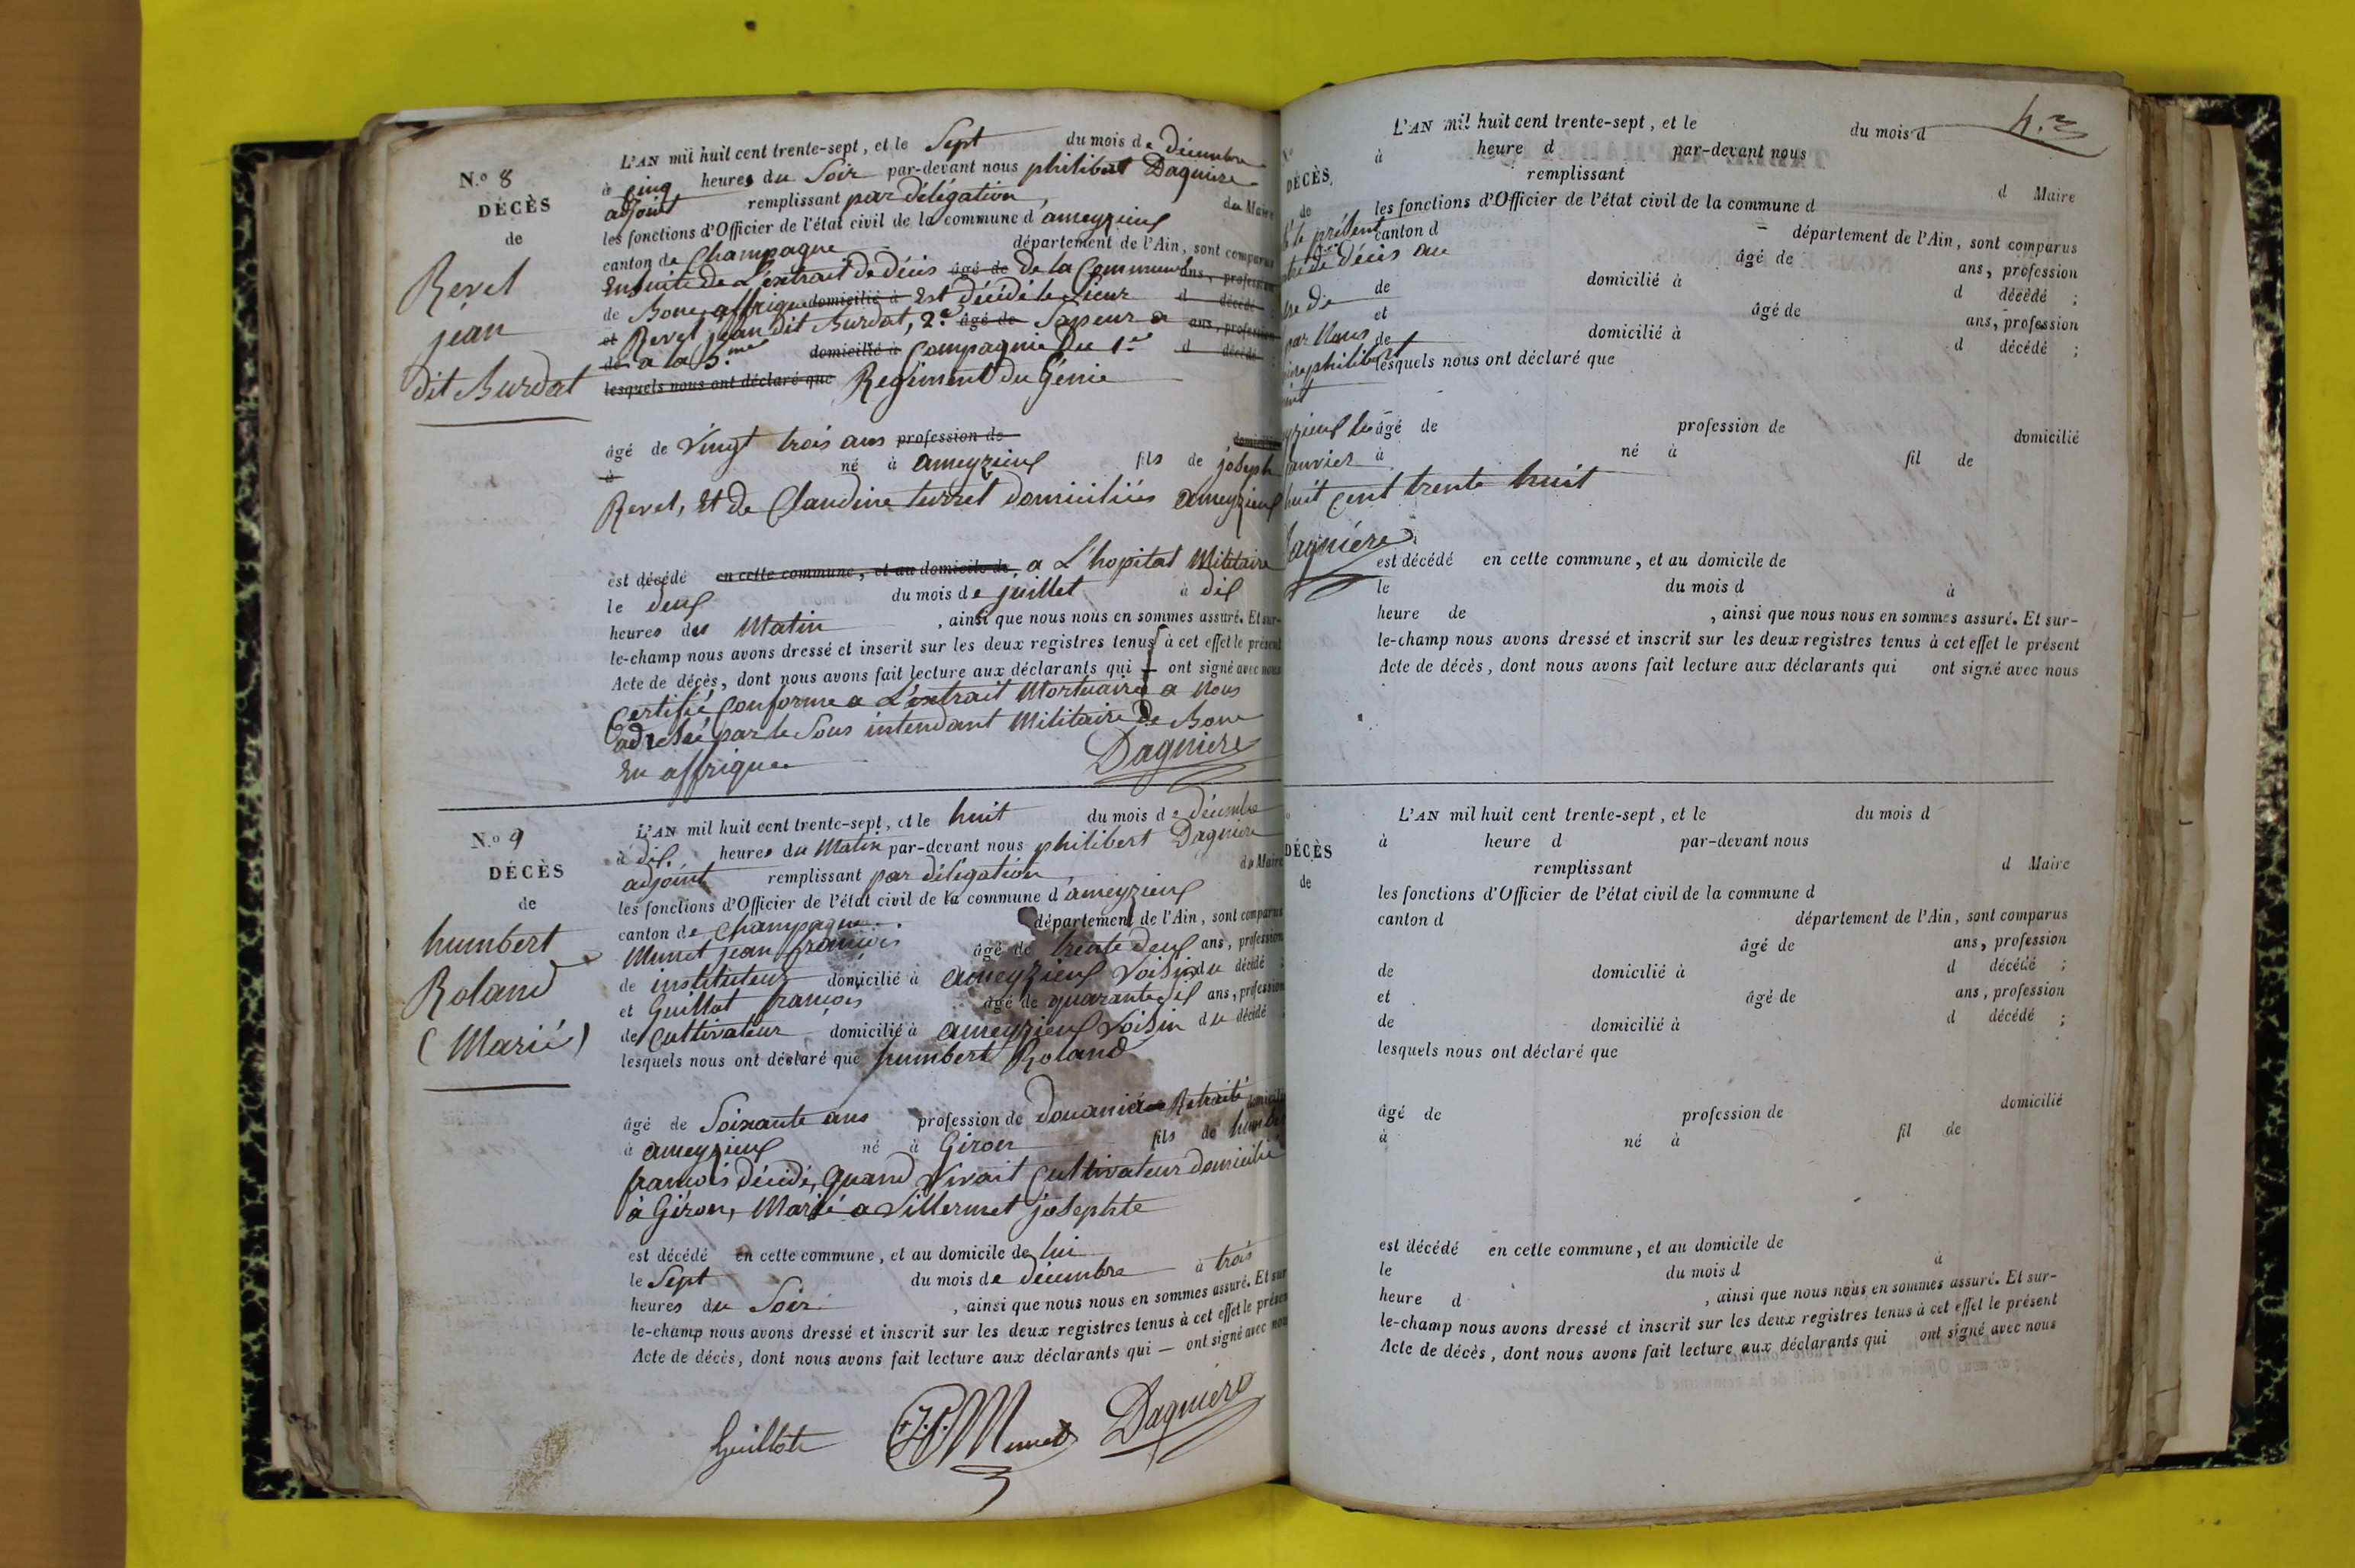 N.º 8
DÉCÈS
de
Revel
jean
dit Burdat
L'AN mil huit cent trente-sept, et le Sept du mois de décembre
à cinq heures du Soir par-devant nous philibert Dagniere
adjoint remplissant par délégation, du Maire
les fonctions d'Officier de l'état civil de la commune d'ameyzieux
canton de Champagne département de l'Ain, sont comparus
Ensuite de L'extrait de décès âgé de de la Commune ans, profession
de Bone affrique domicilié à Est décédé le Sieur d décédé
et Revel jean dit Burdat, 2.e âgé de Sapeur a ans, profession
de a la 3.me domicilié à Compagnie Du 1.er d décédé
lesquels nous ont déclaré que Regiment du Génie
âgé de Vingt trois ans profession de domicilié
à né à ameyzieux fils de joseph
Revel, Et de Claudine turret domiciliés ameyzieux
est décédé en cette commune, et au domicile de, a L'hopital Militaire
le deux du mois de juillet à dix
heures du Matin, ainsi que nous nous en sommes assuré. Et sur-
le-champ nous avons dressé et inscrit sur les deux registres tenus à cet effet le présent
Acte de décès, dont nous avons fait lecture aux déclarants qui — ont signé avec nous
Certifié Conforme a L'extrait Mortuaire a Nous
adressé par le Sous intendant Militaire de Bone
En affrique
Dagniere
N.º 9
DÉCÈS
de
humbert
Roland
(Marié)
L'AN mil huit cent trente-sept, et le huit du mois de décembre
à dix heures du Matin par-devant nous philibert Dagniere
adjoint remplissant par délégation, du Maire
les fonctions d'Officier de l'état civil de la commune d'ameyzieux
canton de Champagne département de l'Ain, sont comparus
Munet jean françois âgé de trente deux ans, profession
de instituteur domicilié à ameyzieux Voisin du décédé ;
et Guillot françois âgé de quarante dix ans, profession
de Cultivateur, domicilié à ameyzieux Voisin du décédé ;
lesquels nous ont déclaré que humbert Roland
âgé de Soixante ans profession de douanier Retraité domicilié
à ameyzieux né à Giron fils de humbert
françois décédé, quand Vivait Cultivateur domicilié
à Giron, Marié a Villermet josephte
est décédé en cette commune, et au domicile de lui
le Sept du mois de décembre à trois
heures du Soir, ainsi que nous nous en sommes assuré. Et sur
le-champ nous avons dressé et inscrit sur les deux registres tenus à cet effet le présent
Acte de décès, dont nous avons fait lecture aux déclarants qui — ont signé avec nous
Guillot J.F. Munet Dagniere
L'AN mil huit cent trente-sept, et le du mois d
à heure d par-devant nous
DÉCÈS, remplissant d Maire
de les fonctions d'Officier de l'état civil de la commune d
le présent canton d département de l'Ain, sont comparus
de décès au âgé de ans, profession
de domicilié à d décédé ;
et âgé de ans, profession
par Nous de domicilié à d décédé ;
philibert lesquels nous ont déclaré que
le âgé de profession de domicilié
janvier à né à fil de
huit Cent trente huit
Dagniére
est décédé en cette commune, et au domicile de
le du mois d à
heure de, ainsi que nous nous en sommes assuré. Et sur-
le-champ nous avons dressé et inscrit sur les deux registres tenus à cet effet le présent
Acte de décès, dont nous avons fait lecture aux déclarants qui ont signé avec nous
L'AN mil huit cent trente-sept, et le du mois d
à heure d par-devant nous
DÉCÈS
de
remplissant d Maire
les fonctions d'Officier de l'état civil de la commune d
canton d département de l'Ain, sont comparus
âgé de ans, profession
de domicilié à d décédé ;
et âgé de ans, profession
de domicilié à d décédé ;
lesquels nous ont déclaré que
âgé de profession de domicilié
à né à fil de
est décédé en cette commune, et au domicile de
le du mois d à
heure d, ainsi que nous nous en sommes assuré. Et sur-
le-champ nous avons dressé et inscrit sur les deux registres tenus à cet effet le présent
Acte de décès, dont nous avons fait lecture aux déclarants qui ont signé avec nous